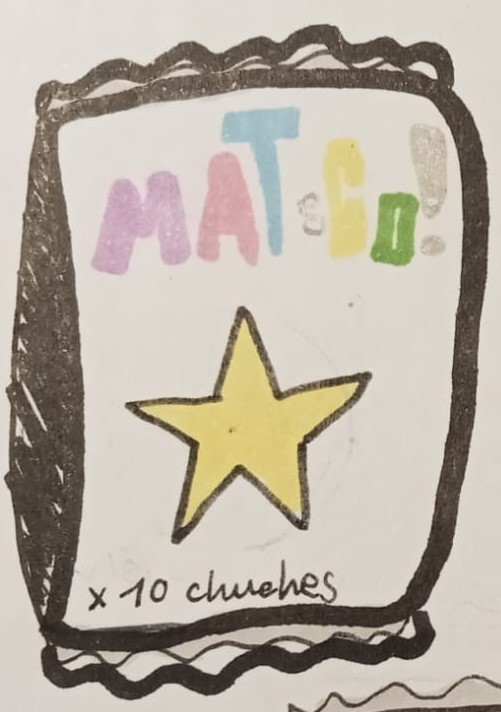 MATsGO!
x 10 chuches